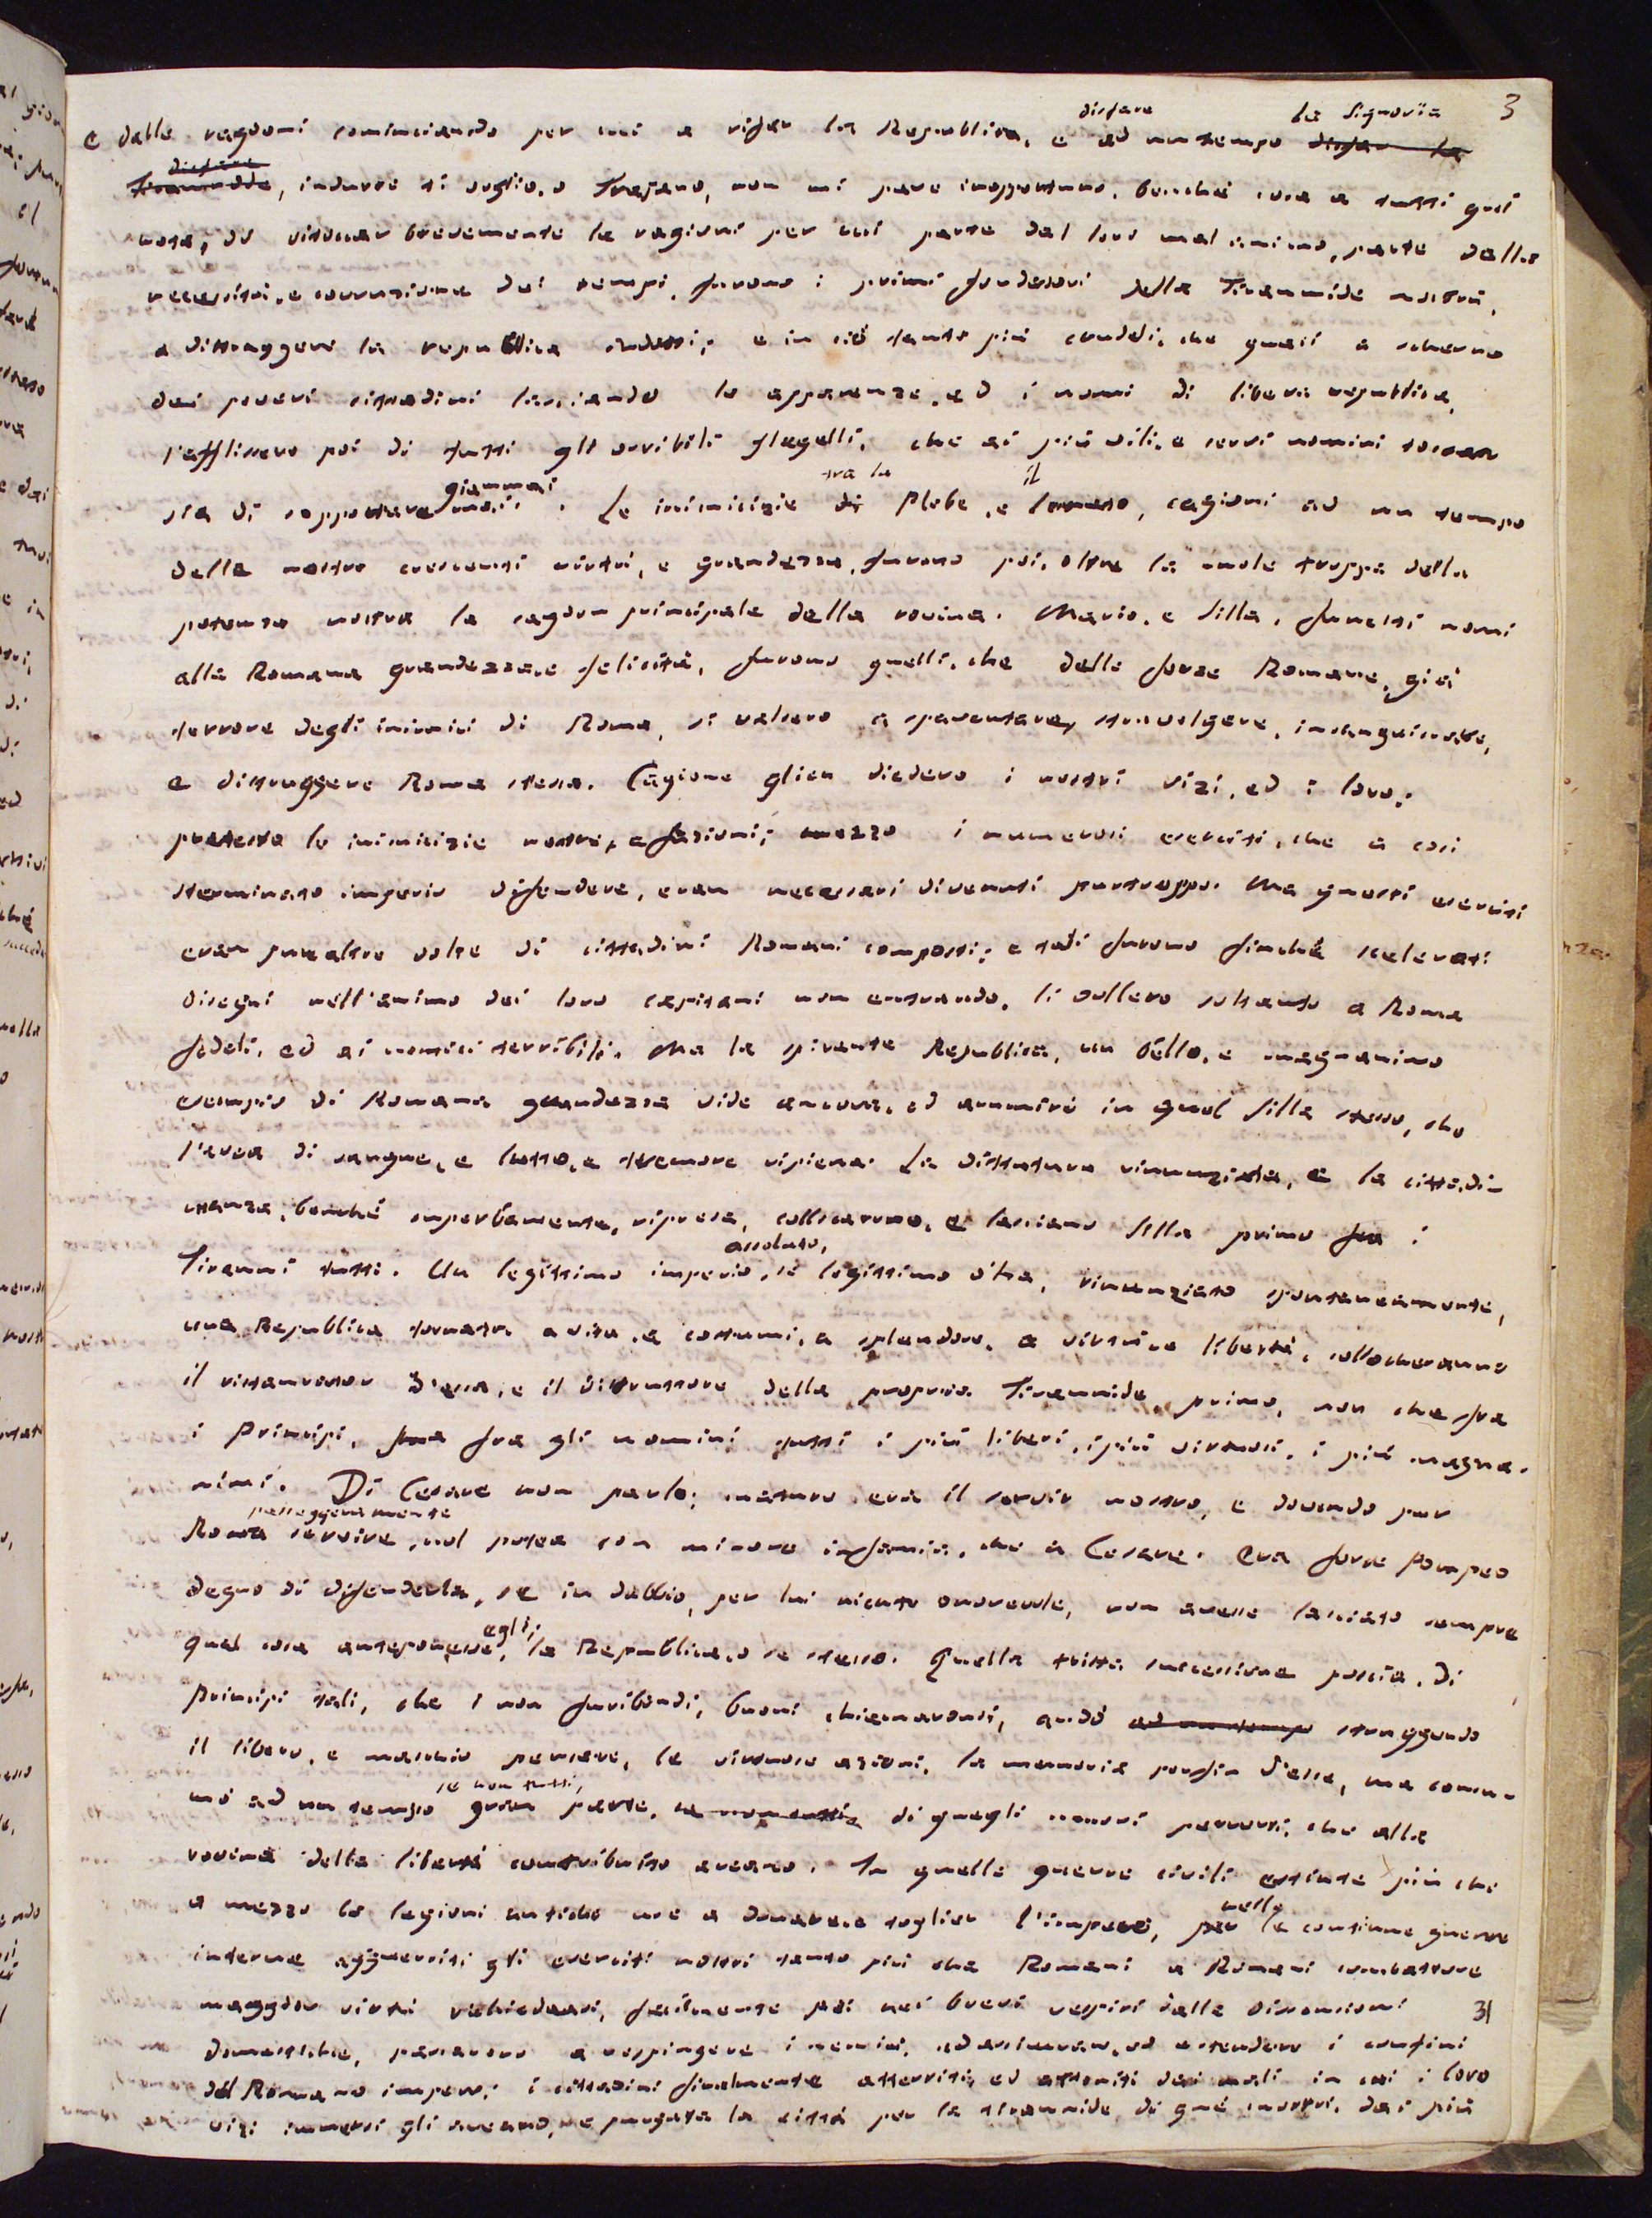 3
disfare la Signoria
E dalle ragioni cominciando per cui a rifar la Republica, e ad un tempo disfar la
disfare
Tirannide, indurre ti voglio, o Trajano, non mi pare inopportuno, benchè cosa a tutti quasi
nota, di ritoccar brevemente le ragioni per cui parte dal loro mal animo, parte dalla
necessità, e corruzione dei tempi, furono i primi fondatori della Tirannide nostra,
a distruggere la republica indotti; e in ciò tanto più crudeli, che quasi a scherno
dei poveri cittadini lasciando le apparenze, ed i nomi di libera republica,
l'afflissero poi di tutti gli orribili flagelli, che ai più vili, e servi uomini toccato
giammai tra la il
sia di sopportare mai. Le inimicizie di Plebe, e Senato, cagioni ad un tempo
della nostra crescenti virtù, e grandezza, furono poi, oltre la mole troppa della
potenza nostra la cagion principale della rovina. Mario, e Silla, funesti nomi
alla Romana grandezza, e felicità, furono quelli, che delle forze Romane, già
terrore degli inimici di Roma, si valsero a spaventare, stravolgere, insanguinare,
e distruggere Roma stessa. Cagione glien diedero i nostri vizi, ed i loro;
pretesto le inimicizie nostre, e fazioni; mezzo i numerosi eserciti, che a così
sterminato imperio difendere, eran necessari divenuti purtroppo. Ma questi eserciti
eran pure altre volte di cittadini Romani composti; e tali furono finchè scelerati
disegni nell'animo dei loro capitani non entrando, li vollero soltanto a Roma
fedeli, ed ai nemici terribili. Ma la spirante Republica, un bello, e magnanimo
esempio di Romana grandezza vide ancora, ed ammirò in quel Silla stesso, che
l'avea di sangue, e lutto, e tremore ripiena. La dittatura rinunziata, e la cittadi-
nanza, benchè superbamente, ripresa, collocarono, e lasciano Silla primo fra i
assoluto,
Tiranni tutti. Un legittimo imperio, se legittimo v'ha, rinunziato spontaneamente,
una Republica tornata a vita, a costumi, a splendore, a virtù, a libertà, collocheranno
il ristaurator d'essa, e il distruttore della propria Tirannide, primo, non che fra
i Principi, fra gli uomini tutti i più liberi, i più virtuosi, i più magna-
nimi. Di Cesare non parlo; maturo era il servir nostro, e dovendo pur
passeggeramente
Roma servire, nol potea con minore infamia, che a Cesare. Era forse Pompeo
degno di difenderla, se in dubbio, per lui niente onorevole, non avesse lasciato sempre
egli,
qual cosa anteponesse, la Republica, o se stesso. Quella trista successione poscia, di
Principi tali, che i non furibondi, buoni chiamaronsi, andò ad un tempo struggendo
il libero, e maschio pensare, le virtuose azioni, la memoria perfin d'esse, ma consu-
se non tutti,
mò ad un tempo gran parte, se non tutti, di quegli uomini perversi, che alla
rovina della libertà contribuito aveano. In quelle guerre civili estinte più che
nelle
a mezzo le legioni antiche use a donare, e toglier l'impero, per le continue guerre
interne agguerriti gli eserciti nostri tanto più che Romani a Romani combattere
maggior virtù richiedeasi, facilmente poi nei brevi respiri dalle dissensioni
31
domestiche, passarono a respingere i nemici, ad assicurare, ed estendere i confini
del Romano impero; i cittadini finalmente atterriti, ed attoniti dai mali in cui i loro
vizi immersi gli aveano, e purgata la città per la tirannide di quei mostri, dai più